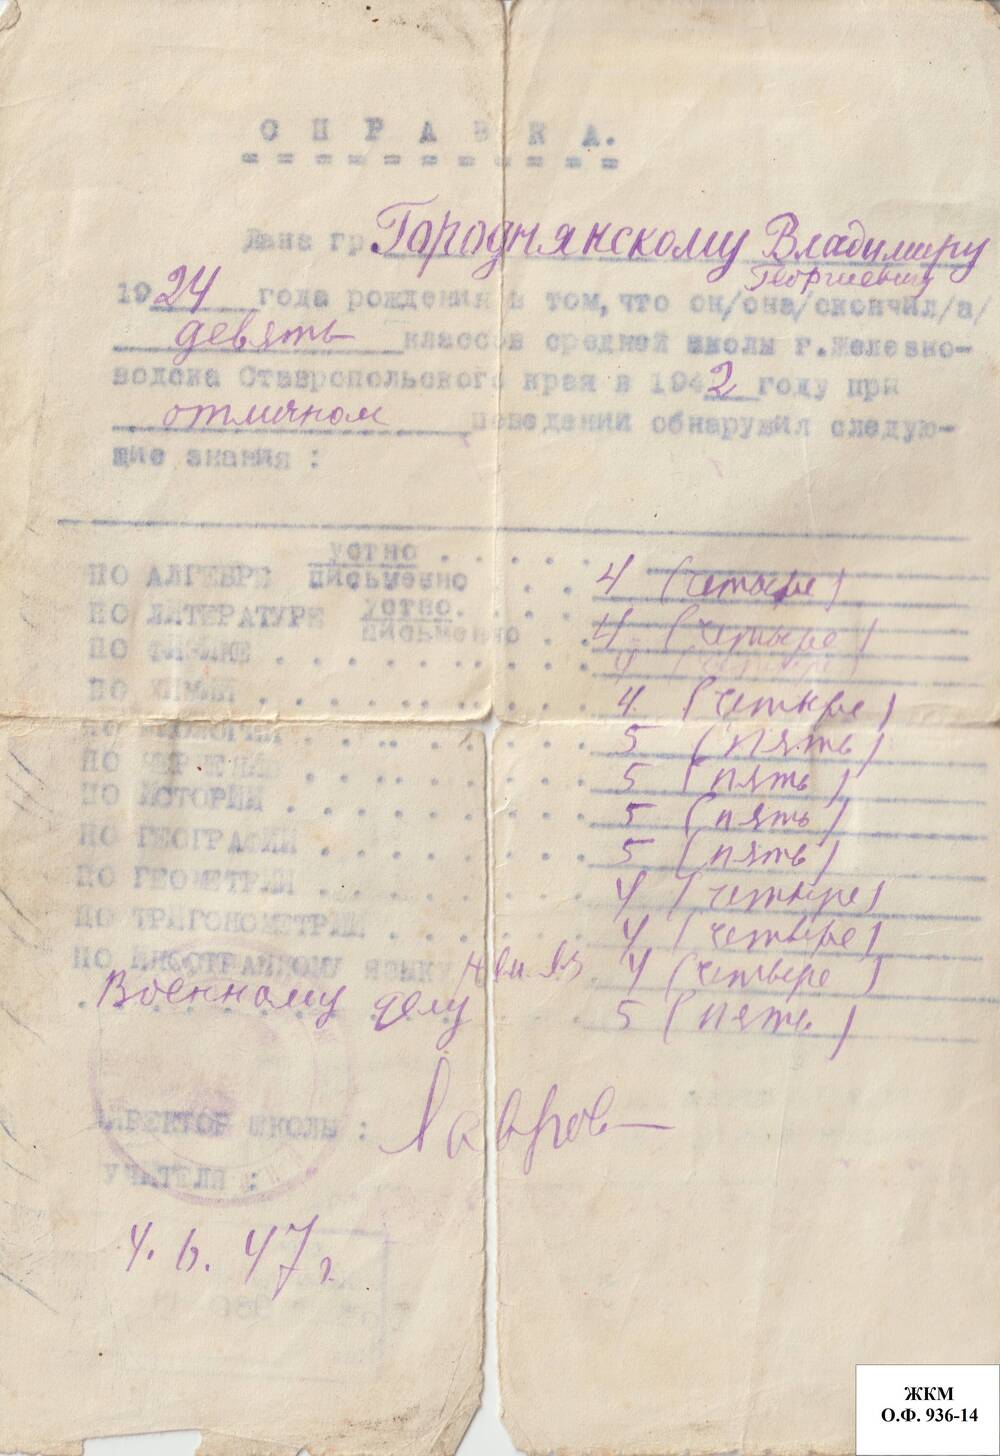 СПРАВКА.
Дана гр. Городнянскому Владимиру
Георгиевичу
1924 года рождения в том, что он/она/скончил/а/
девять классов средней школы г.Железно-
водска Ставропольского края в 1942 году при
отличном поведении обнаружил следую-
щие знания :
ПО АЛГЕБРЕ устно письменно 4 (четыре)
ПО ЛИТЕРАТУРЕ устно. письменно 4 (четыре)
ПО ФИЗИКЕ 4 (четыре)
ПО ХИМИИ 4 (четыре)
ПО 5 (пять)
ПО 5 (пять)
ПО ИСТОРИИ 5 (пять)
ПО ГЕОГРАФИИ 5 (пять)
ПО ГЕОМЕТРИИ 4 (четыре)
ПО ТРИГОНОМЕТРИИ 4 (четыре)
ПО ИНОСТРАННОМУ ЯЗЫКУ нем. яз 4 (четыре)
Военному делу 5 (пять)
ДИРЕКТОР ШКОЛЫ : Лавров
УЧИТЕЛЯ :
4. 6. 47 г.
ЖКМ
О.Ф. 936-14